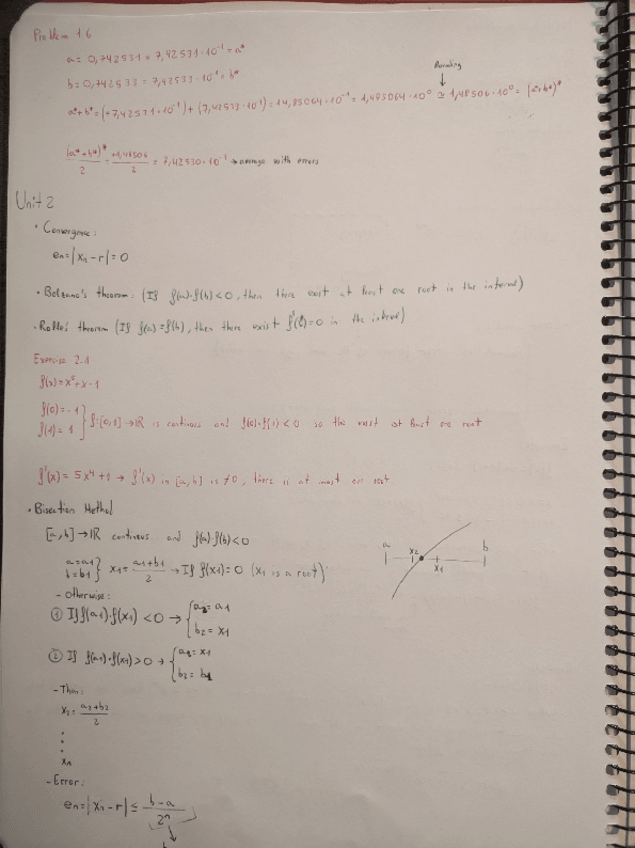 Problem 1.6
a = 0,742531 = 7,42531·10⁻¹ = a*
b = 0,742533 = 7,42533·10⁻¹ = b*
Rounding
a*+b* = (+7,42531·10⁻¹) + (7,42533·10⁻¹) = 14,85064·10⁻¹ = 1,485064·10⁰ ≅ 1,48506·10⁰ = (a*+b*)*
(a*+b*)*/2 = +1,48506/2 = 7,42530·10⁻¹ → average with errors
Unit 2
· Convergence:
en = |xn - r| = 0
· Bolzano's theorem: (If f(a)·f(b) < 0, then there exist at least one root in the interval)
· Rolle's theorem (If f(a) = f(b), then there exist f'(c) = 0 in the interval)
Exercise 2.1
f(x) = x⁵ + x - 1
f(0) = -1
f(1) = 1 } f:[0,1] → ℝ is continous and f(0)·f(1) < 0 so the exist at least one root
f'(x) = 5x⁴ + 1 → f'(x) in [a,b] is ≠ 0, there is at most one root
· Bisection Method
[a,b] → ℝ continous and f(a)·f(b) < 0
a = a1
b = b1 } x1 = a1+b1/2 → If f(x1) = 0 (x1 is a root)
a x2 x1 b
- Otherwise:
① If f(a1)·f(x1) < 0 → { a2 = a1
b2 = x1
② If f(a1)·f(x1) > 0 → { a2 = x1
b2 = b1
- Then:
x2 = a2+b2/2
⋮
xn
- Error:
en = |xn - r| ≤ b-a/2ⁿ